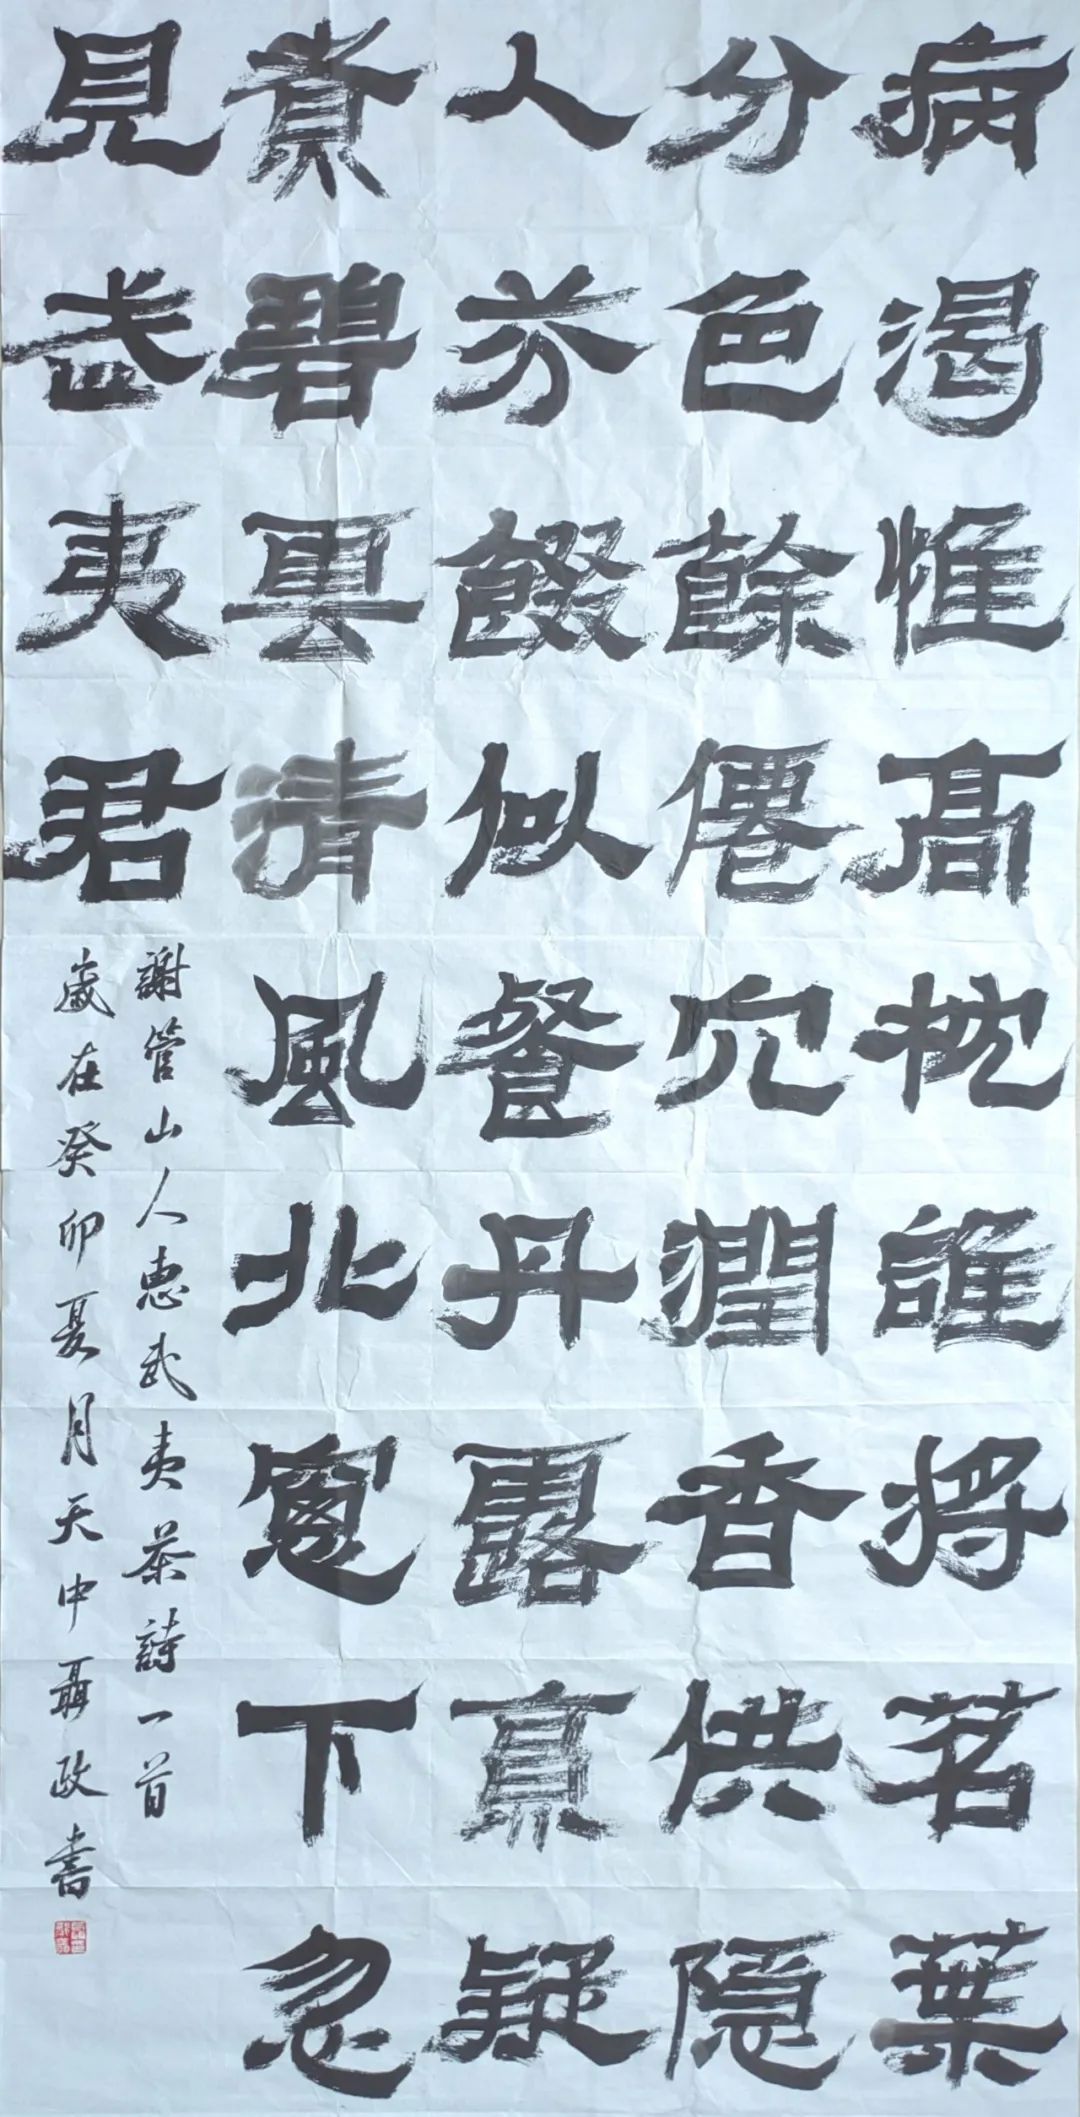 病渴惟高枕誰將茗葉
分色餘僊穴潤香供隐
人芬餟似餐丹露真疑
煮碧雲清風北窻下忽
見武夷君
謝管山人惠武夷茶詩一首
歲在癸卯夏月天中聶政書